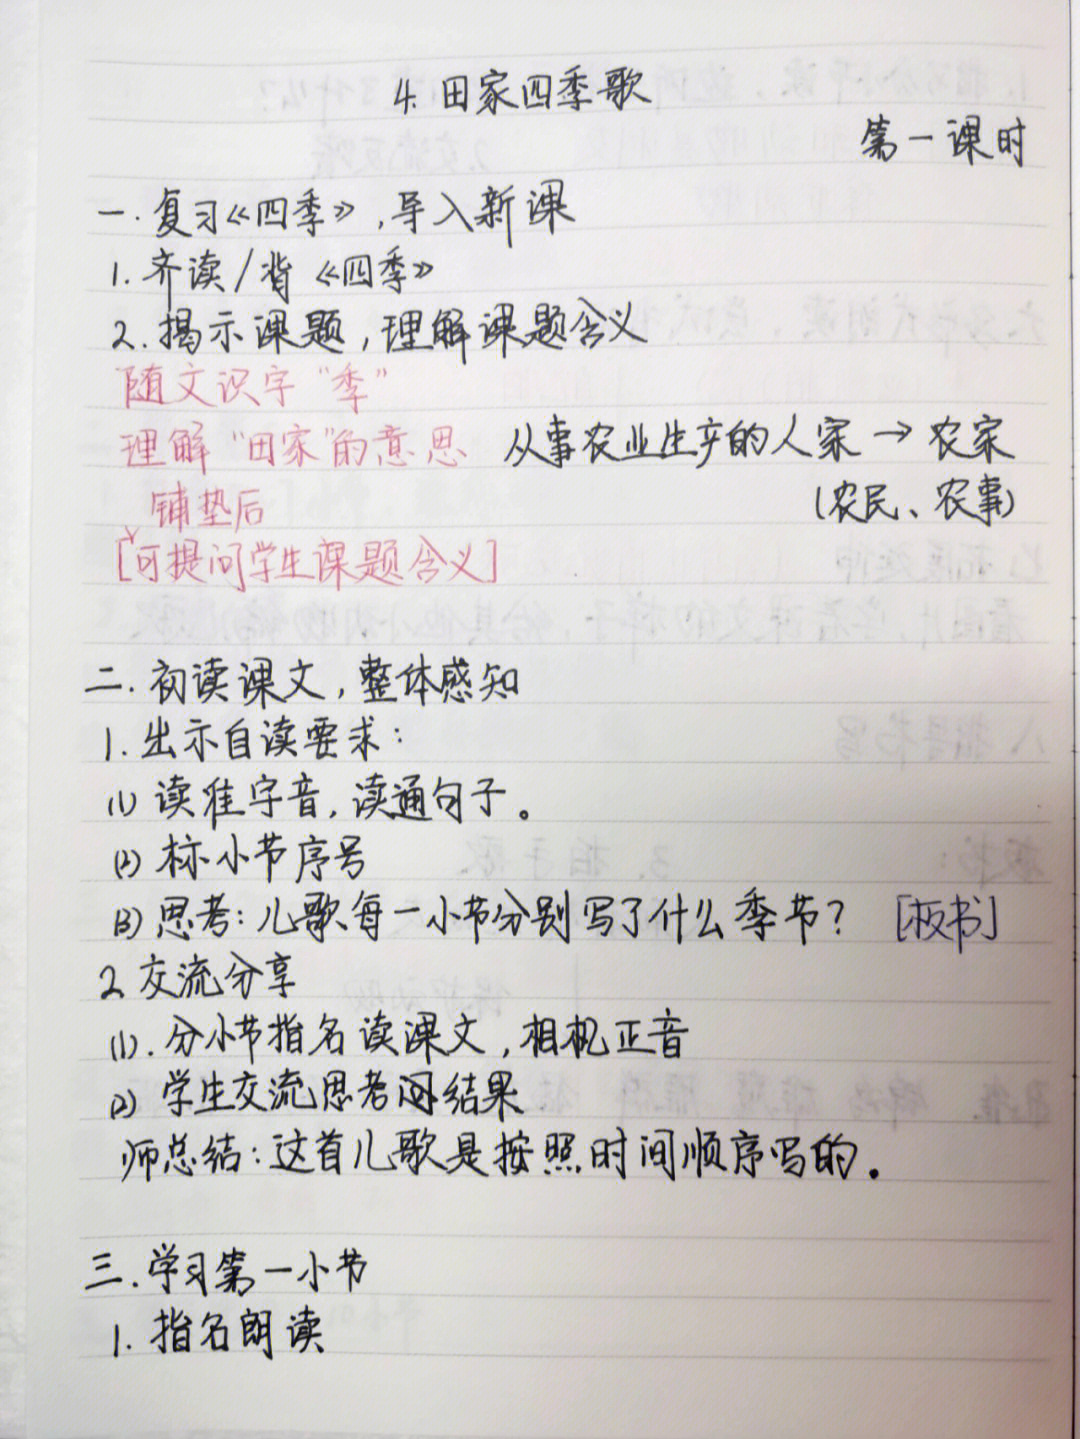 4.田家四季歌
第一课时
一.复习《四季》,导入新课
1.齐读/背《四季》
2.揭示课题,理解课题含义
随文识字"季"
理解"田家"的意思 从事农业生产的人家→农家
(农民、农事)
铺垫后
[可提问学生课题含义]
二.初读课文,整体感知
1.出示自读要求:
(1)读准字音,读通句子。
(2)标小节序号
(3)思考:儿歌每一小节分别写了什么季节? [板书]
2.交流分享
(1).分小节指名读课文,相机正音
(2)学生交流思考结果
师总结:这首儿歌是按照时间顺序写的。
三.学习第一小节
1.指名朗读